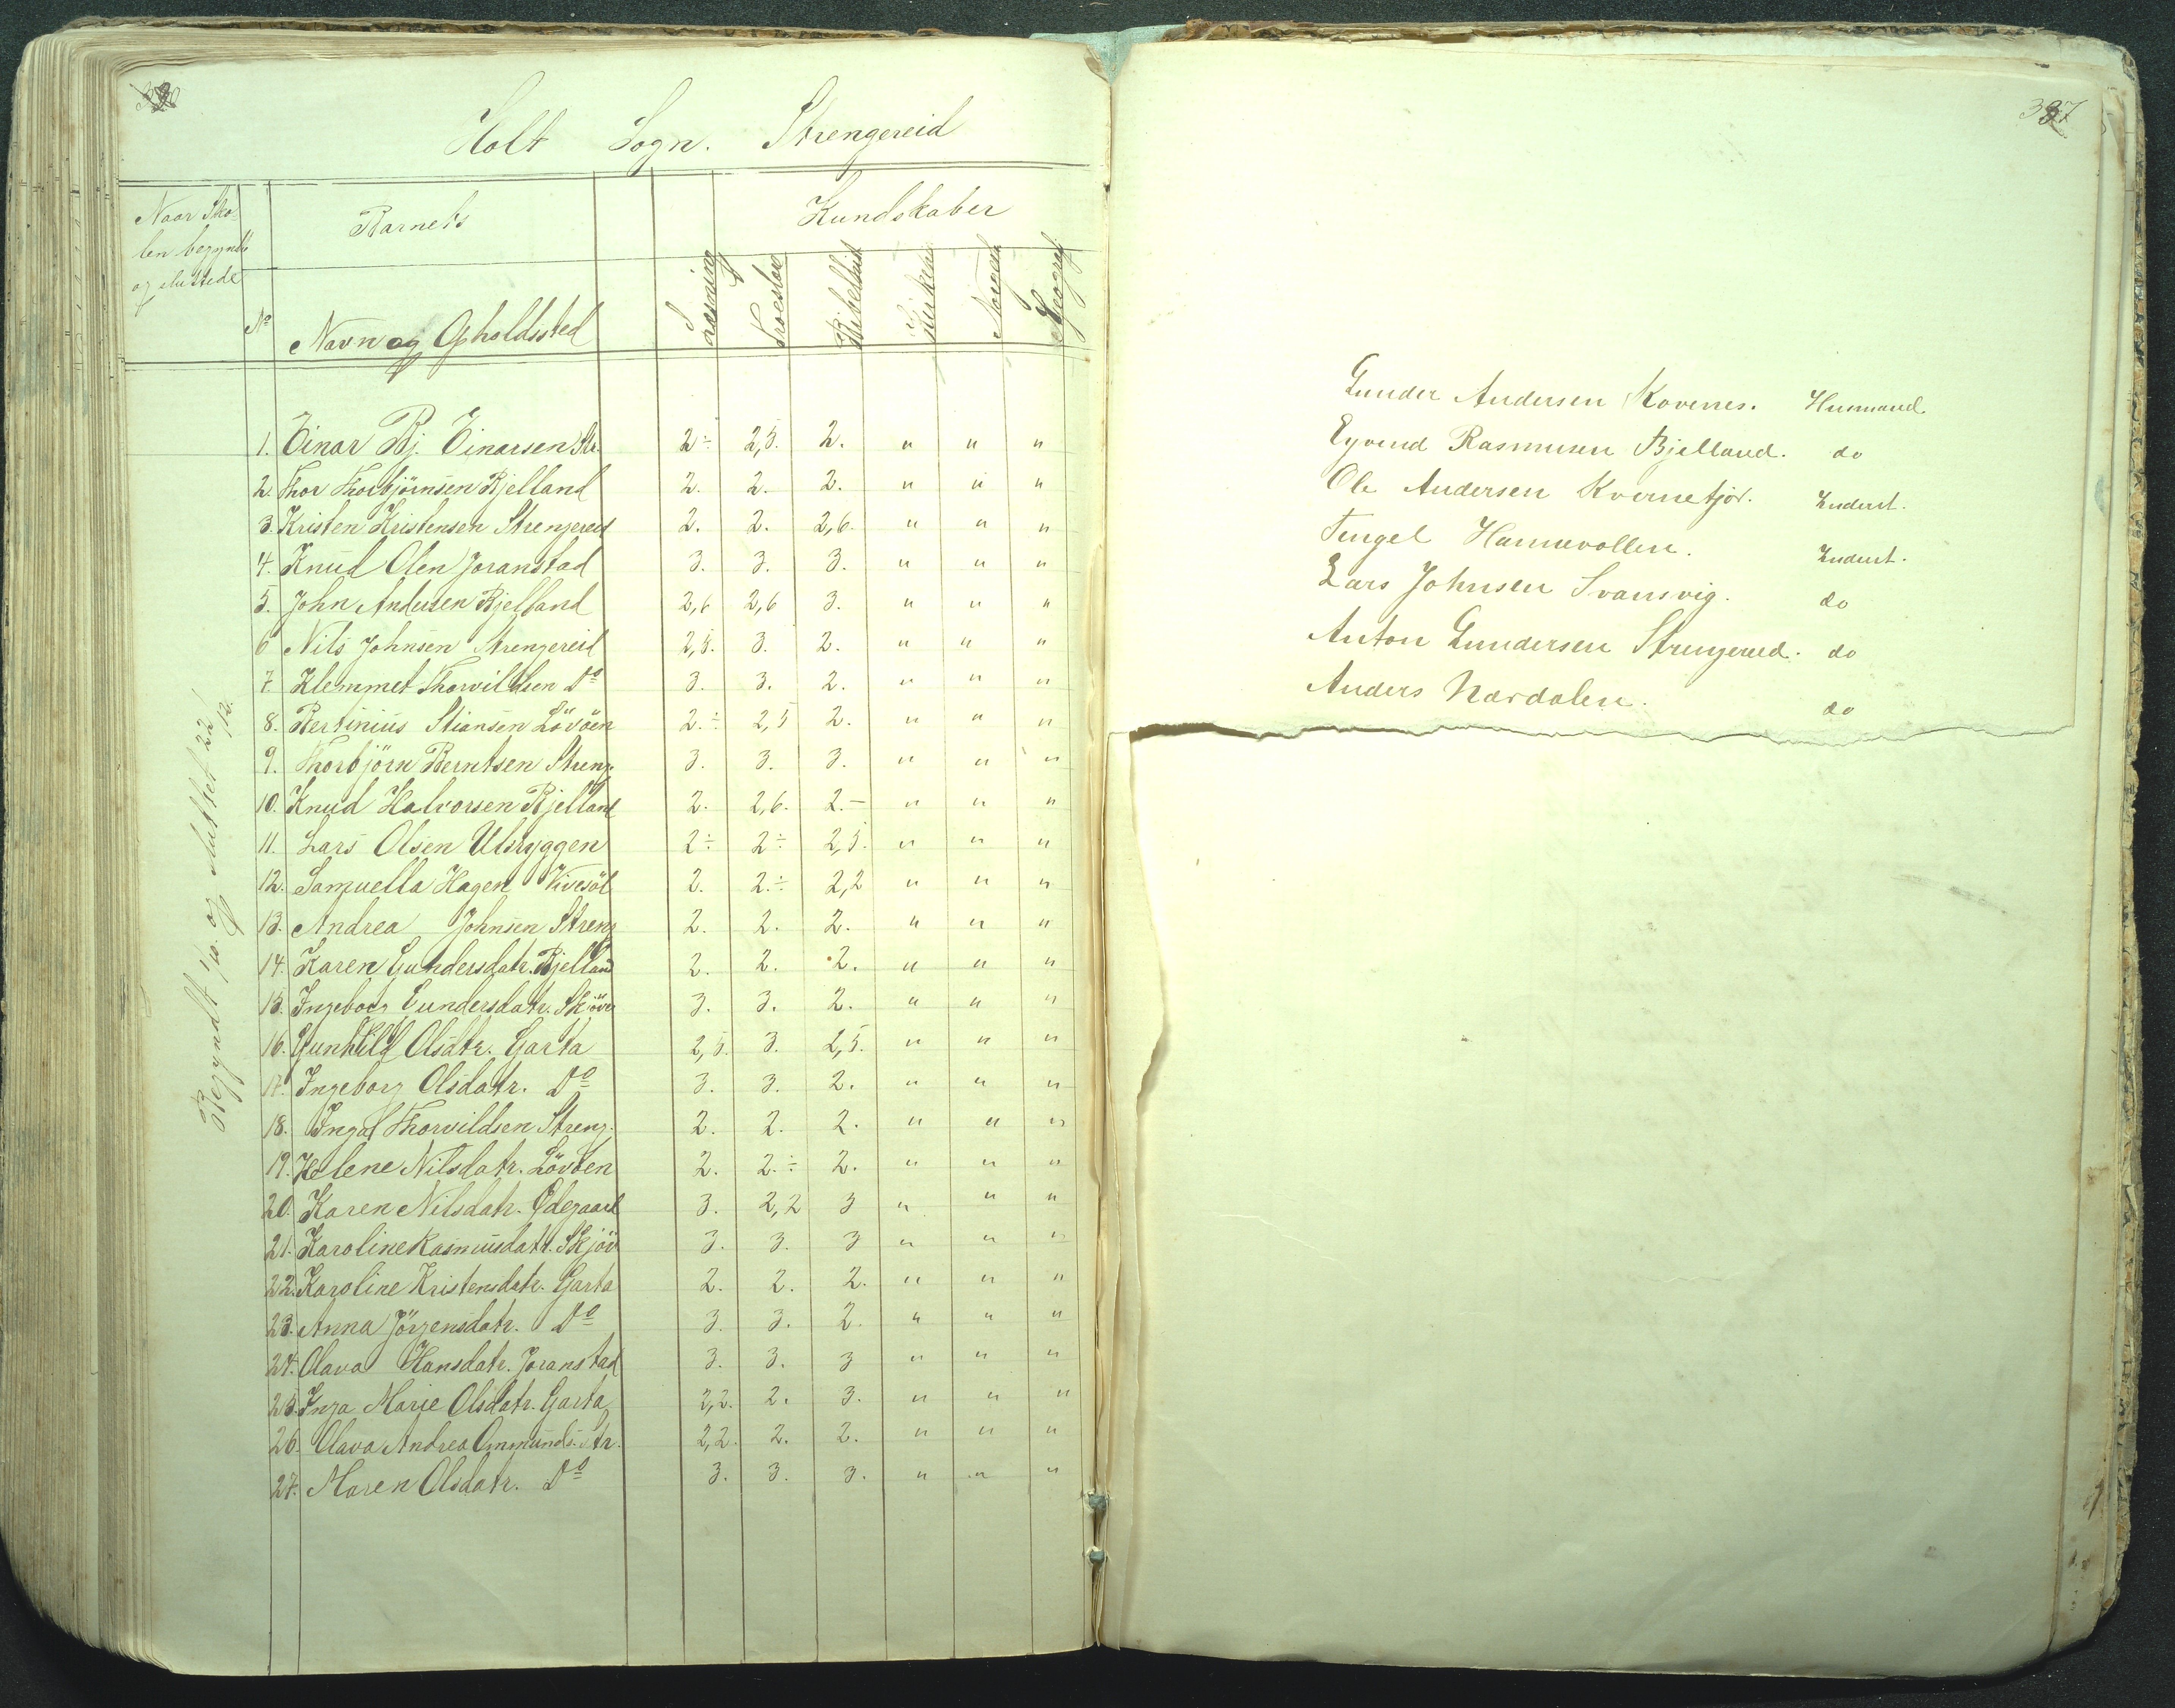 Holt Sogn. Strengereid
Naar Sko-
len begyndte
og sluttede
Barnets
Kundskaber
No
Navn og Opholdssted
Læsning
Troeslær
Bibelhist
Kirkehist
Norges
Geograf
Begyndt 1/10. og sluttet 22/12.
1. Einar Bj. Einarsen Str. 2÷ 2,5. 2. " " "
2. Thor Thorbjörnsen Bjelland 2. 2. 2. " " "
3. Kristen Kristensen Strengereid 2. 2. 2,6. " " "
4. Knud Olen Joranstad 3. 3. 3. " " "
5. John Andersen Bjelland 2,6 2,6 3. " " "
6 Nils Johnsen Strengereid 2,5. 3. 2. " " "
7. Klemmet Thorvildsen Do 3. 3. 2. " " "
8. Bertinius Stiansen Lövöen 2.÷ 2,5 2. " " "
9. Thorbjörn Berntsen Streng. 3. 3. 3. " " "
10. Knud Halvorsen Bjelland 2. 2,6. 2.- " " "
11. Lars Olsen Ulsryggen 2÷ 2÷ 2,5. " " "
12. Samuella Hagen Vivesöl 2. 2.÷ 2,2 " " "
13. Andrea Johnsen Streng 2. 2. 2. " " "
14. Karen Gundersdatr. Bjelland 2. 2. 2. " " "
15. Ingeborg Gundersdatr. Skjöv 3. 3. 2. " " "
16. Gunhild Olsdtr. Garta 2,5. 3. 2,5. " " "
17. Ingeborg Olsdatr. Do 3. 3. 2. " " "
18. Inga Thorvildsen Streng. 2. 2. 2. " " "
19. Helene Nilsdatr. Lövöen 2. 2.÷ 2. " " "
20. Karen Nilsdatr. Ödegaard 3. 2,2 3 " " "
21. Karoline Rasmusdatr. Skjöv 3. 3. 3 " " "
22. Karoline Kristensdatr. Garta 2. 2. 2. " " "
23. Anna Jörgensdatr. Do 3. 3. 2. " " "
24. Olava Hansdatr. Joranstad 3. 3. 3 " " "
25. Inga Marie Olsdatr. Garta 2,2. 2. 3. " " "
26. Olava Andrea Ommunds. Str. 2,2. 2. 2. " " "
27. Maren Olsdatr. Do 3. 3. 3. " " "
337
Gunder Andersen Kovenes. Husmand.
Eyvend Rasmusen Bjelland. do
Ole Andersen Kvernetjör. Inderst.
Tengel Hannevollen. Inderst.
Lars Johnsen Svansvig. do
Anton Gundersen Strengereid. do
Anders Nardalen. do